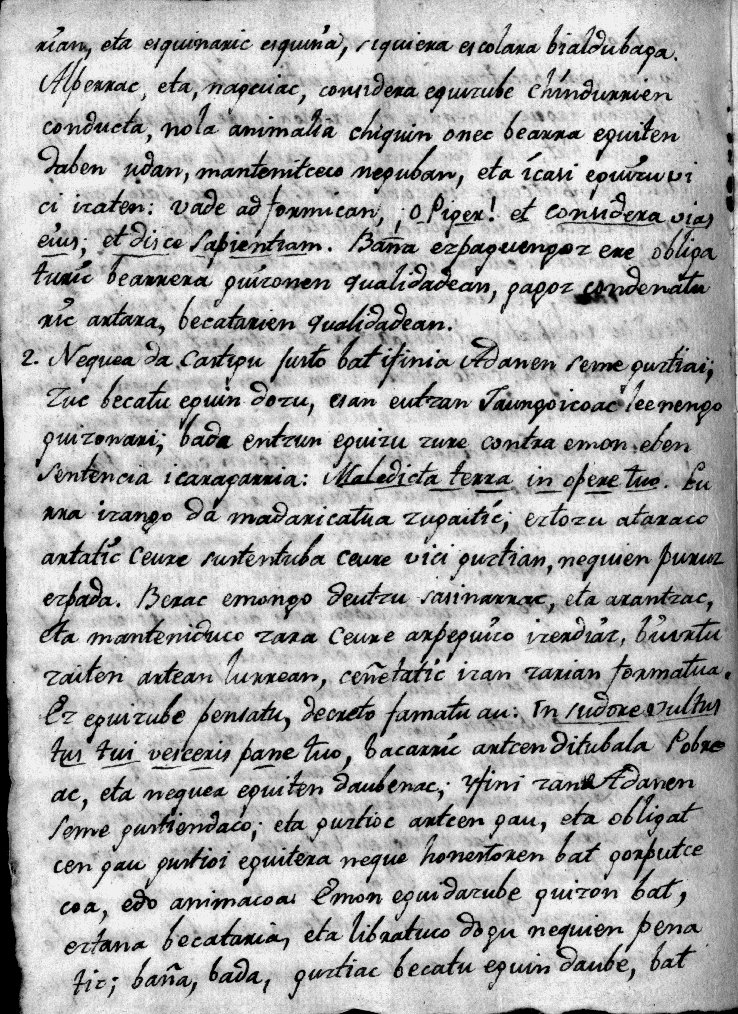 rian, eta esquinaric esquiña, siquiera escolara bialdubaga.
Alperrac, eta, nageiac, considera eguizube chindurrien
conducta, nola animalia chiquin onec bearra eguiten
daben udan, mantenitceco neguban, eta icasi eguizu vi
ci izaten: vade ad formican, ¡O Piger! et considera vias
eius; et disce sapientiam. Baña ezpaguengoz ere obliga
turic bearrera guizonen qualidadean, gagoz condenatu
ric artara, becatarien qualidadean.
2. Neguea da castigu justo bat ifinia Adanen seme guztiai;
zuc becatu eguin dozu, esan eutzan Jaungoicoac leenengo
guizonari; bada entzun eguizu zure contra emon eben
sentencia icaragarria: Maledicta terra in opere tuo. Lu
rra izango da madaricatua zugaitic; eztozu ataraco
artatic ceure sustentuba ceure vici guztian, nequien puruz
ezpada. Berac emongo deutzu sasinarrac, eta arantzac,
eta manteniduco zara ceure arpeguico izerdiaz, biurtu
zaiten artean lurrean, ceñetatic izan zarian formatua.
Ez eguizube pensatu, decreto famatu au: In sudore vultus
tus tui vesceris pane tuo, bacarric artcen ditubala Pobre
ac, eta neguea eguiten daubenac; ifini zana Adanen
seme guztiendaco; eta guztioc artcen gau, eta obligat
cen gau guztioi eguitera negue honestoren bat gorputce
coa, edo animacoa. Emon eguidazube guizon bat,
eztana becataria, eta libratuco dogu nequien pena
tic; baña, bada, guztiac becatu eguin daube, bat